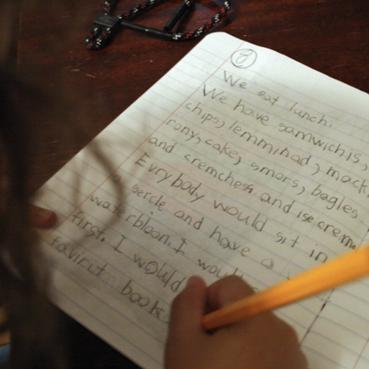 We eat lunch.
We have samwichis,
chips, lemminad, mack
rony, cake, smors, bagles,
and cremchees and isecreem
Evrybody would sit in
sercle and have a
waterbloon. I
first. I would
favirit book